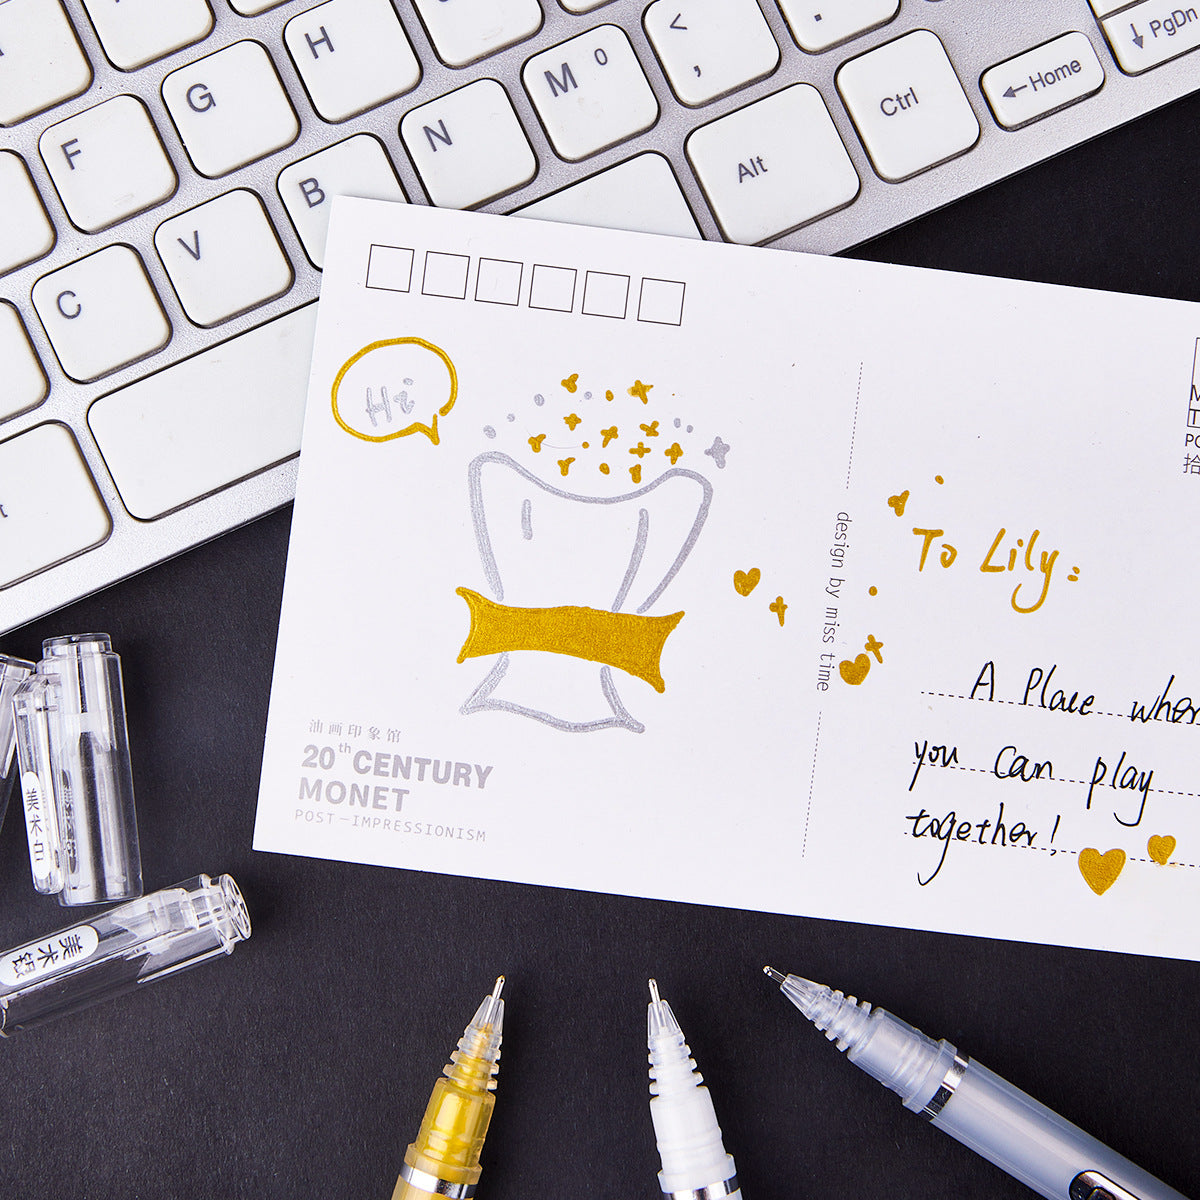 H
G
F
M 0
N
B
V
C
<
,
.
Alt
Ctrl
←Home
↓ PgDn
Hi
To Lily:
design by miss time
A Place wher
you can play
together!
油画印象馆
20th CENTURY
MONET
POST-IMPRESSIONISM
拾
美术白
美术银